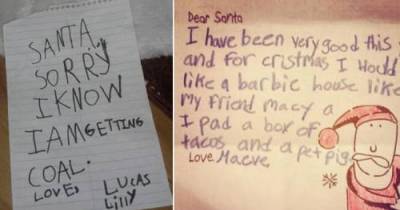 SANTA,
SORRY
I KNOW
I AM GETTING
COAL.
LOVE, LUCAS
LILLY
Dear Santa
I have been very good this y
and for cristmas I Would
like a barbie house like
my friend macy a
I pad a box of
tacos and a pet pig.
Love. Maeve